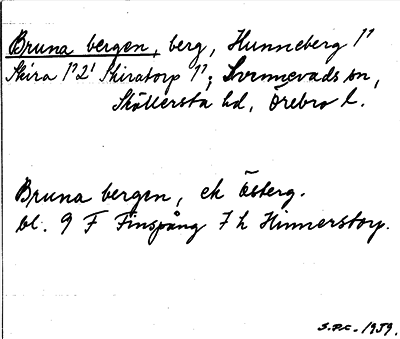 Bruna bergen, berg, Hunneberg 1"
Skira 1"2' Skiratorp 1"; Svennevads sn,
Sköllersta hd, Örebro l.
Bruna bergen, ek Österg.
bl. 9 F Finspång 7 h Hinnerstorp.
S.P.C. 1959.